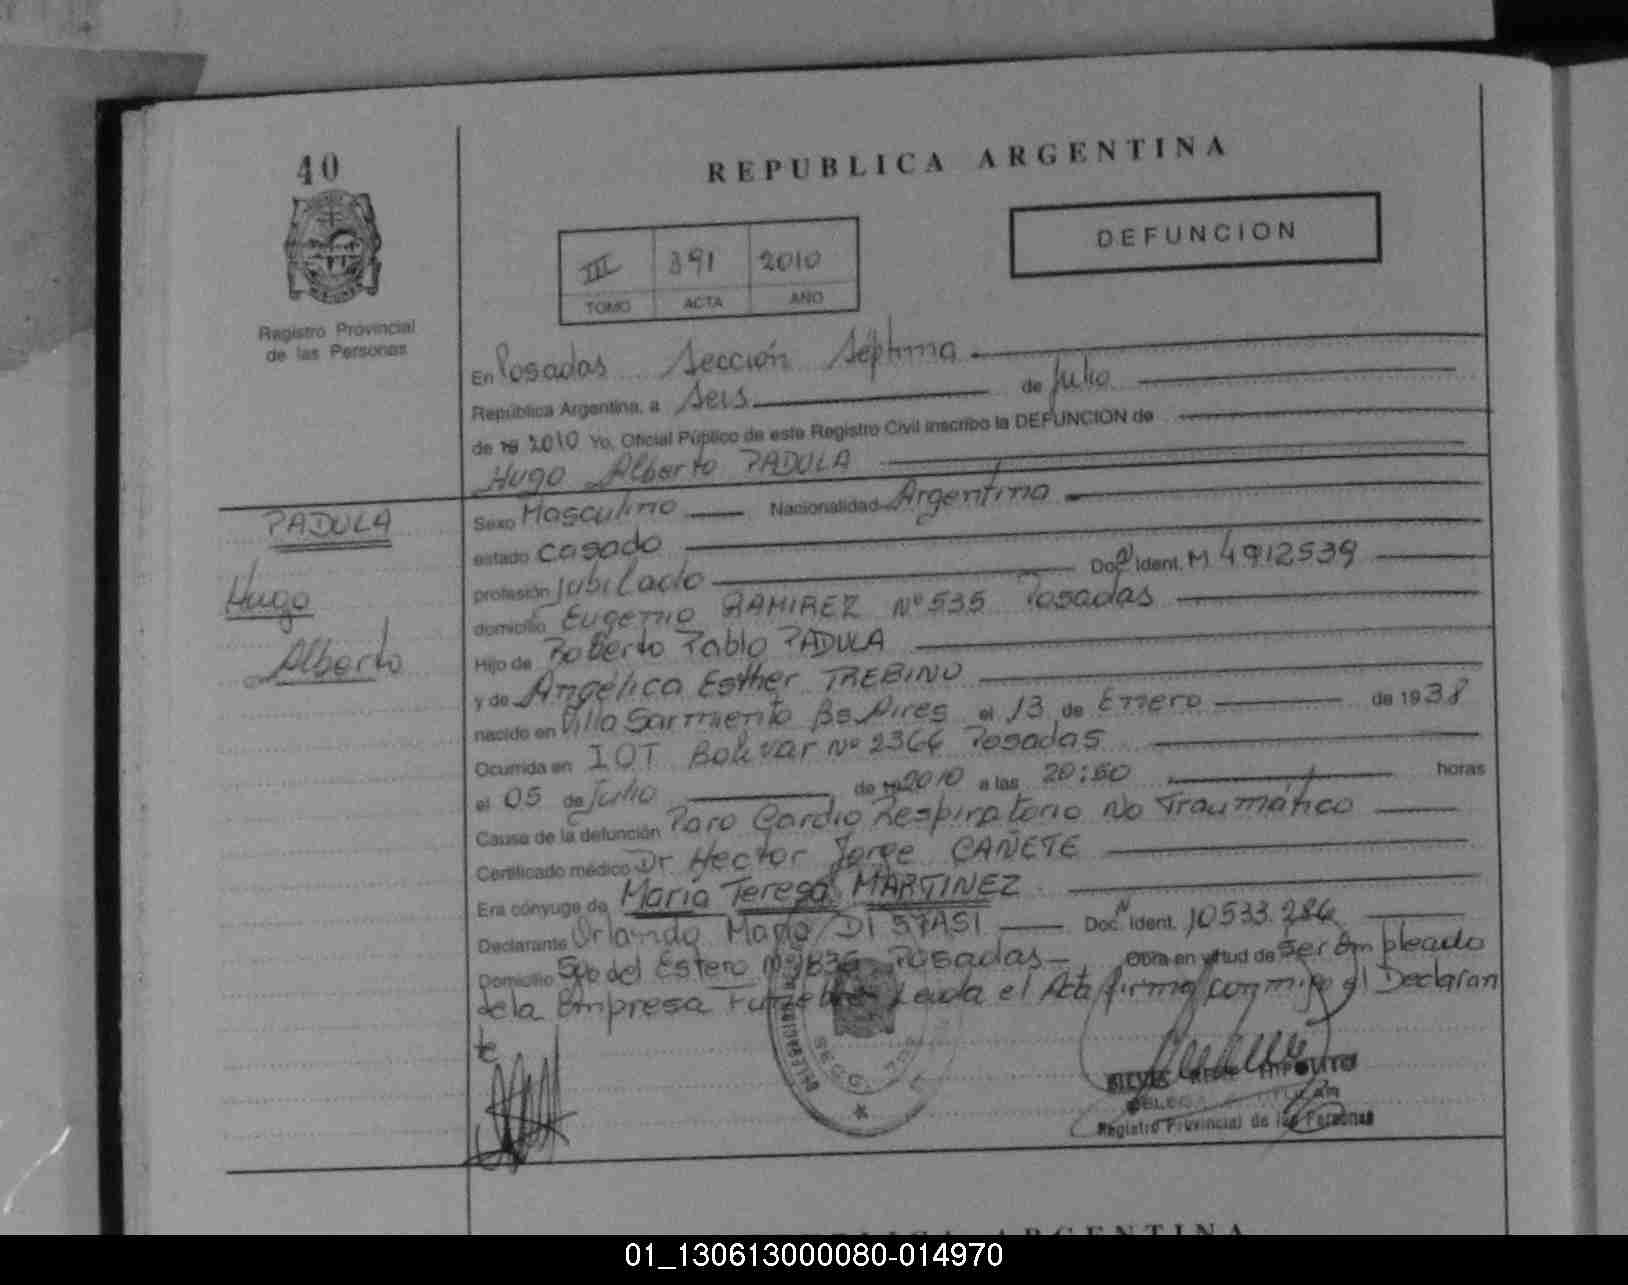 40
REPUBLICA ARGENTINA
DEFUNCION
III 391 2010
TOMO ACTA AÑO
Registro Provincial
de las Personas
En Posadas Sección Séptima
República Argentina, a Seis de Julio
de 19 2010 Yo, Oficial Público de este Registro Civil inscribo la DEFUNCION de
Hugo Alberto PADULA
PADULA
Hugo
Alberto
Sexo Masculino Nacionalidad Argentina
estado casado
profesión jubilado Doc N Ident. M 4912539
domicilio Eugenio RAMIREZ Nº 535 Posadas
Hijo de Roberto Pablo PADULA
y de Angélica Esther TREBINO
nacido en Villa Sarmiento Bs. Aires el 13 de Enero de 1938
Ocurrida en IOT Bolivar Nº 2366 Posadas
el 05 de Julio de 19 2010 a las 20:50 horas
Causa de la defunción Paro Cardio Respiratorio No Traumático
Certificado médico Dr Hector Jorge CAÑETE
Era cónyuge de María Teresa MARTINEZ
Declarante Orlando Mario DI STASI Doc N Ident. 10533.286
Domicilio Sgo del Estero Posadas Obra en virtud de Ser Empleado
de la Empresa Funebre Leida el Acta firma conmigo el Declaran
te
Registro Provincial de las Personas
ARGENTINA
01_130613000080-014970